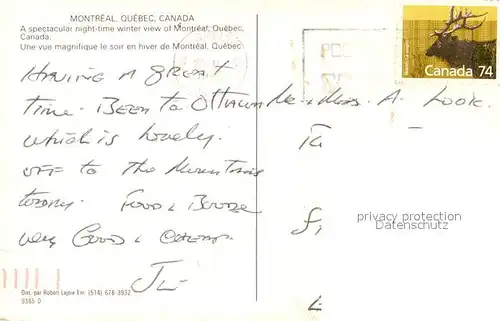 MONTRÉAL, QUÉBEC, CANADA
A spectacular night-time winter view of Montréal, Québec,
Canada.
Une vue magnifique le soir en hiver de Montréal, Québec.
Having a great
time. Been to Ottawa
which is lovely.
off to the Mountains
today. Food & Booze
very Good & Cheap.
Dist. par Robert Lajoie Enr. (514) 678 3932
9365 D
Canada 74
Mr & Mrs. A. Look.
privacy protection